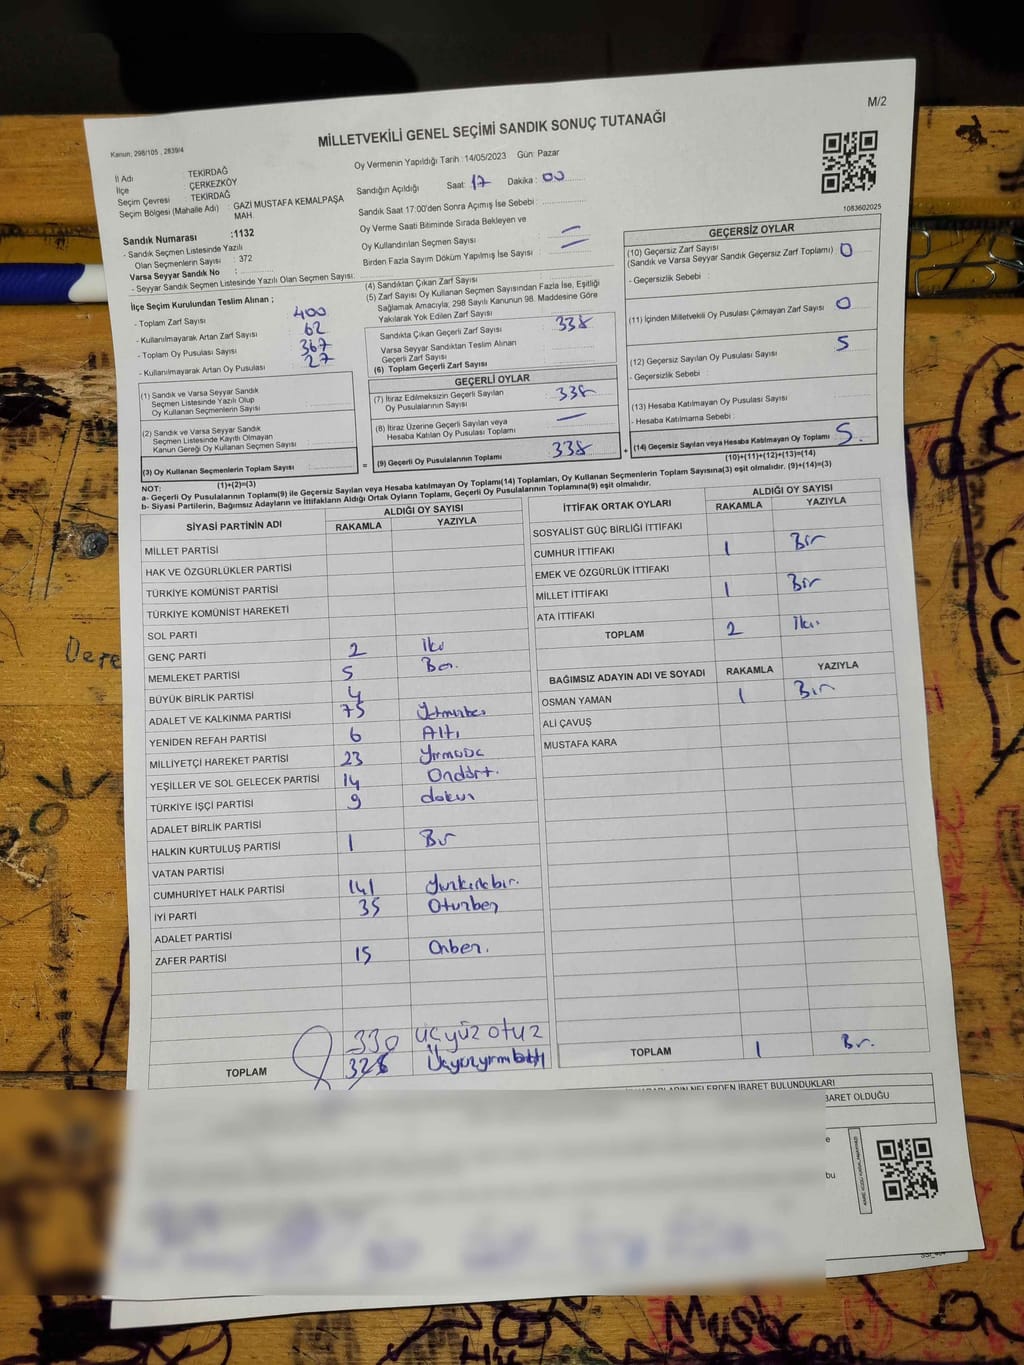 M/2
MİLLETVEKİLİ GENEL SEÇİMİ SANDIK SONUÇ TUTANAĞI
Kanun: 298/105 , 2839/4
İl Adı : TEKİRDAĞ
İlçe : ÇERKEZKÖY
Seçim Çevresi : TEKİRDAĞ
Seçim Bölgesi (Mahalle Adı) : GAZİ MUSTAFA KEMALPAŞA MAH.
Sandık Numarası :1132
- Sandık Seçmen Listesinde Yazılı
Olan Seçmenlerin Sayısı : 372
Varsa Seyyar Sandık No :
- Seyyar Sandık Seçmen Listesinde Yazılı Olan Seçmen Sayısı:
Oy Vermenin Yapıldığı Tarih :14/05/2023 Gün: Pazar
Sandığın Açıldığı Saat: 17 Dakika : 00
Sandık Saat 17:00'den Sonra Açılmış İse Sebebi :
Oy Verme Saati Bitiminde Sırada Bekleyen ve
Oy Kullandırılan Seçmen Sayısı :
Birden Fazla Sayım Döküm Yapılmış İse Sayısı :
1083602025
İlçe Seçim Kurulundan Teslim Alınan ;
- Toplam Zarf Sayısı : 400
- Kullanılmayarak Artan Zarf Sayısı : 62
- Toplam Oy Pusulası Sayısı : 367
- Kullanılmayarak Artan Oy Pusulası : 27
(1) Sandık ve Varsa Seyyar Sandık
Seçmen Listesinde Yazılı Olup
Oy Kullanan Seçmenlerin Sayısı :
(2) Sandık ve Varsa Seyyar Sandık
Seçmen Listesinde Kayıtlı Olmayan
Kanun Gereği Oy Kullanan Seçmen Sayısı :
(3) Oy Kullanan Seçmenlerin Toplam Sayısı :
(1)+(2)=(3)
(4) Sandıktan Çıkan Zarf Sayısı :
(5) Zarf Sayısı Oy Kullanan Seçmen Sayısından Fazla İse, Eşitliği
Sağlamak Amacıyla; 298 Sayılı Kanunun 98. Maddesine Göre
Yakılarak Yok Edilen Zarf Sayısı :
Sandıkta Çıkan Geçerli Zarf Sayısı : 338
Varsa Seyyar Sandıktan Teslim Alınan
Geçerli Zarf Sayısı :
(6) Toplam Geçerli Zarf Sayısı
GEÇERLİ OYLAR
(7) İtiraz Edilmeksizin Geçerli Sayılan
Oy Pusulalarının Sayısı : 338
(8) İtiraz Üzerine Geçerli Sayılan veya
Hesaba Katılan Oy Pusulası Toplamı :
= (9) Geçerli Oy Pusulalarının Toplamı : 338 +
GEÇERSİZ OYLAR
(10) Geçersiz Zarf Sayısı
(Sandık ve Varsa Seyyar Sandık Geçersiz Zarf Toplamı) : 0
- Geçersizlik Sebebi :
(11) İçinden Milletvekili Oy Pusulası Çıkmayan Zarf Sayısı : 0
(12) Geçersiz Sayılan Oy Pusulası Sayısı : 5
- Geçersizlik Sebebi :
(13) Hesaba Katılmayan Oy Pusulası Sayısı :
- Hesaba Katılmama Sebebi :
(14) Geçersiz Sayılan veya Hesaba Katılmayan Oy Toplamı : 5.
(10)+(11)+(12)+(13)=(14)
NOT:
a- Geçerli Oy Pusulalarının Toplamı(9) ile Geçersiz Sayılan veya Hesaba katılmayan Oy Toplamı(14) Toplamları, Oy Kullanan Seçmenlerin Toplam Sayısına(3) eşit olmalıdır. (9)+(14)=(3)
b- Siyasi Partilerin, Bağımsız Adayların ve İttifakların Aldığı Ortak Oyların Toplamı, Geçerli Oy Pusulalarının Toplamına(9) eşit olmalıdır.
SİYASİ PARTİNİN ADI ALDIĞI OY SAYISI
RAKAMLA YAZIYLA
MİLLET PARTİSİ
HAK VE ÖZGÜRLÜKLER PARTİSİ
TÜRKİYE KOMÜNİST PARTİSİ
TÜRKİYE KOMÜNİST HAREKETİ
SOL PARTİ
GENÇ PARTİ 2 iki
MEMLEKET PARTİSİ 5 Beş.
BÜYÜK BİRLİK PARTİSİ 4
ADALET VE KALKINMA PARTİSİ 75 Yetmişbeş
YENİDEN REFAH PARTİSİ 6 Altı
MİLLİYETÇİ HAREKET PARTİSİ 23 Yirmiüç
YEŞİLLER VE SOL GELECEK PARTİSİ 14 Ondört.
TÜRKİYE İŞÇİ PARTİSİ 9 dokuz
ADALET BİRLİK PARTİSİ
HALKIN KURTULUŞ PARTİSİ 1 Bir
VATAN PARTİSİ
CUMHURİYET HALK PARTİSİ 141 Yüzkırkbir.
İYİ PARTİ 35 Otuzbeş
ADALET PARTİSİ
ZAFER PARTİSİ 15 Onbeş.
330 üçyüz otuz
TOPLAM 326 Üçyüzyirmialtı
İTTİFAK ORTAK OYLARI ALDIĞI OY SAYISI
RAKAMLA YAZIYLA
SOSYALİST GÜÇ BİRLİĞİ İTTİFAKI
CUMHUR İTTİFAKI 1 Bir
EMEK VE ÖZGÜRLÜK İTTİFAKI
MİLLET İTTİFAKI 1 Bir
ATA İTTİFAKI
TOPLAM 2 iki.
BAĞIMSIZ ADAYIN ADI VE SOYADI RAKAMLA YAZIYLA
OSMAN YAMAN 1 Bir
ALİ ÇAVUŞ
MUSTAFA KARA
TOPLAM 1 Bir.
NELERDEN İBARET BULUNDUKLARI
BARET OLDUĞU
Dere